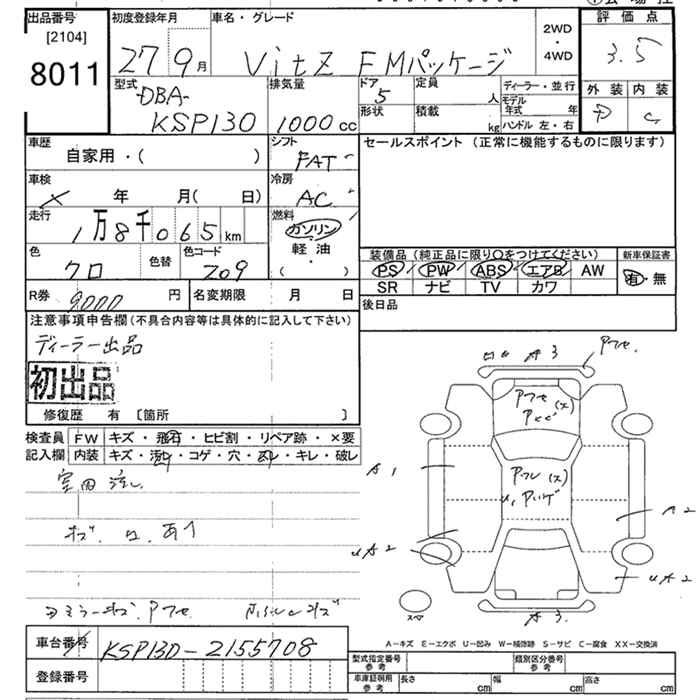 出品番号
[2104]
8011
初度登録年月
27 9月
車名・グレード
VitZ FMパッケージ
2WD
・
4WD
評価点
3.5
外装 内装
C
型式
-DBA-
KSP130
排気量
1000cc
ドア
5
形状
定員
人
積載
kg
ディーラー・並行
モデル年式 年
ハンドル 左・右
車歴
自家用・( )
シフト
FAT
セールスポイント (正常に機能するものに限ります)
車検
年 月( 日)
冷房
AC
走行
1万8千065km
燃料
ガソリン
・
軽油
・
( )
色
クロ
色替
色コード
209
装備品 (純正品に限り○をつけてください)
PS PW ABS エアB AW
SR ナビ TV カワ
新車保証書
有・無
R券
9000円
名変期限 月 日
後日品
注意事項申告欄 (不具合内容等は具体的に記入して下さい)
ディーラー出品
初出品
修復歴 有 [箇所 ]
検査員記入欄
FW キズ・飛石・ヒビ割・リペア跡・×要
内装 キズ・汚れ・コゲ・穴・スレ・キレ・破レ
A3
A1
A2
UA2
UA2
A3
スペア
車台番号
KSP130-2155708
登録番号
A-キズ E-エクボ U-凹み W-補修跡 S-サビ C-腐食 XX-交換済
型式指定番号 参考
類別区分番号 参考
車庫証明用 参考
長さ cm
幅 cm
高さ cm